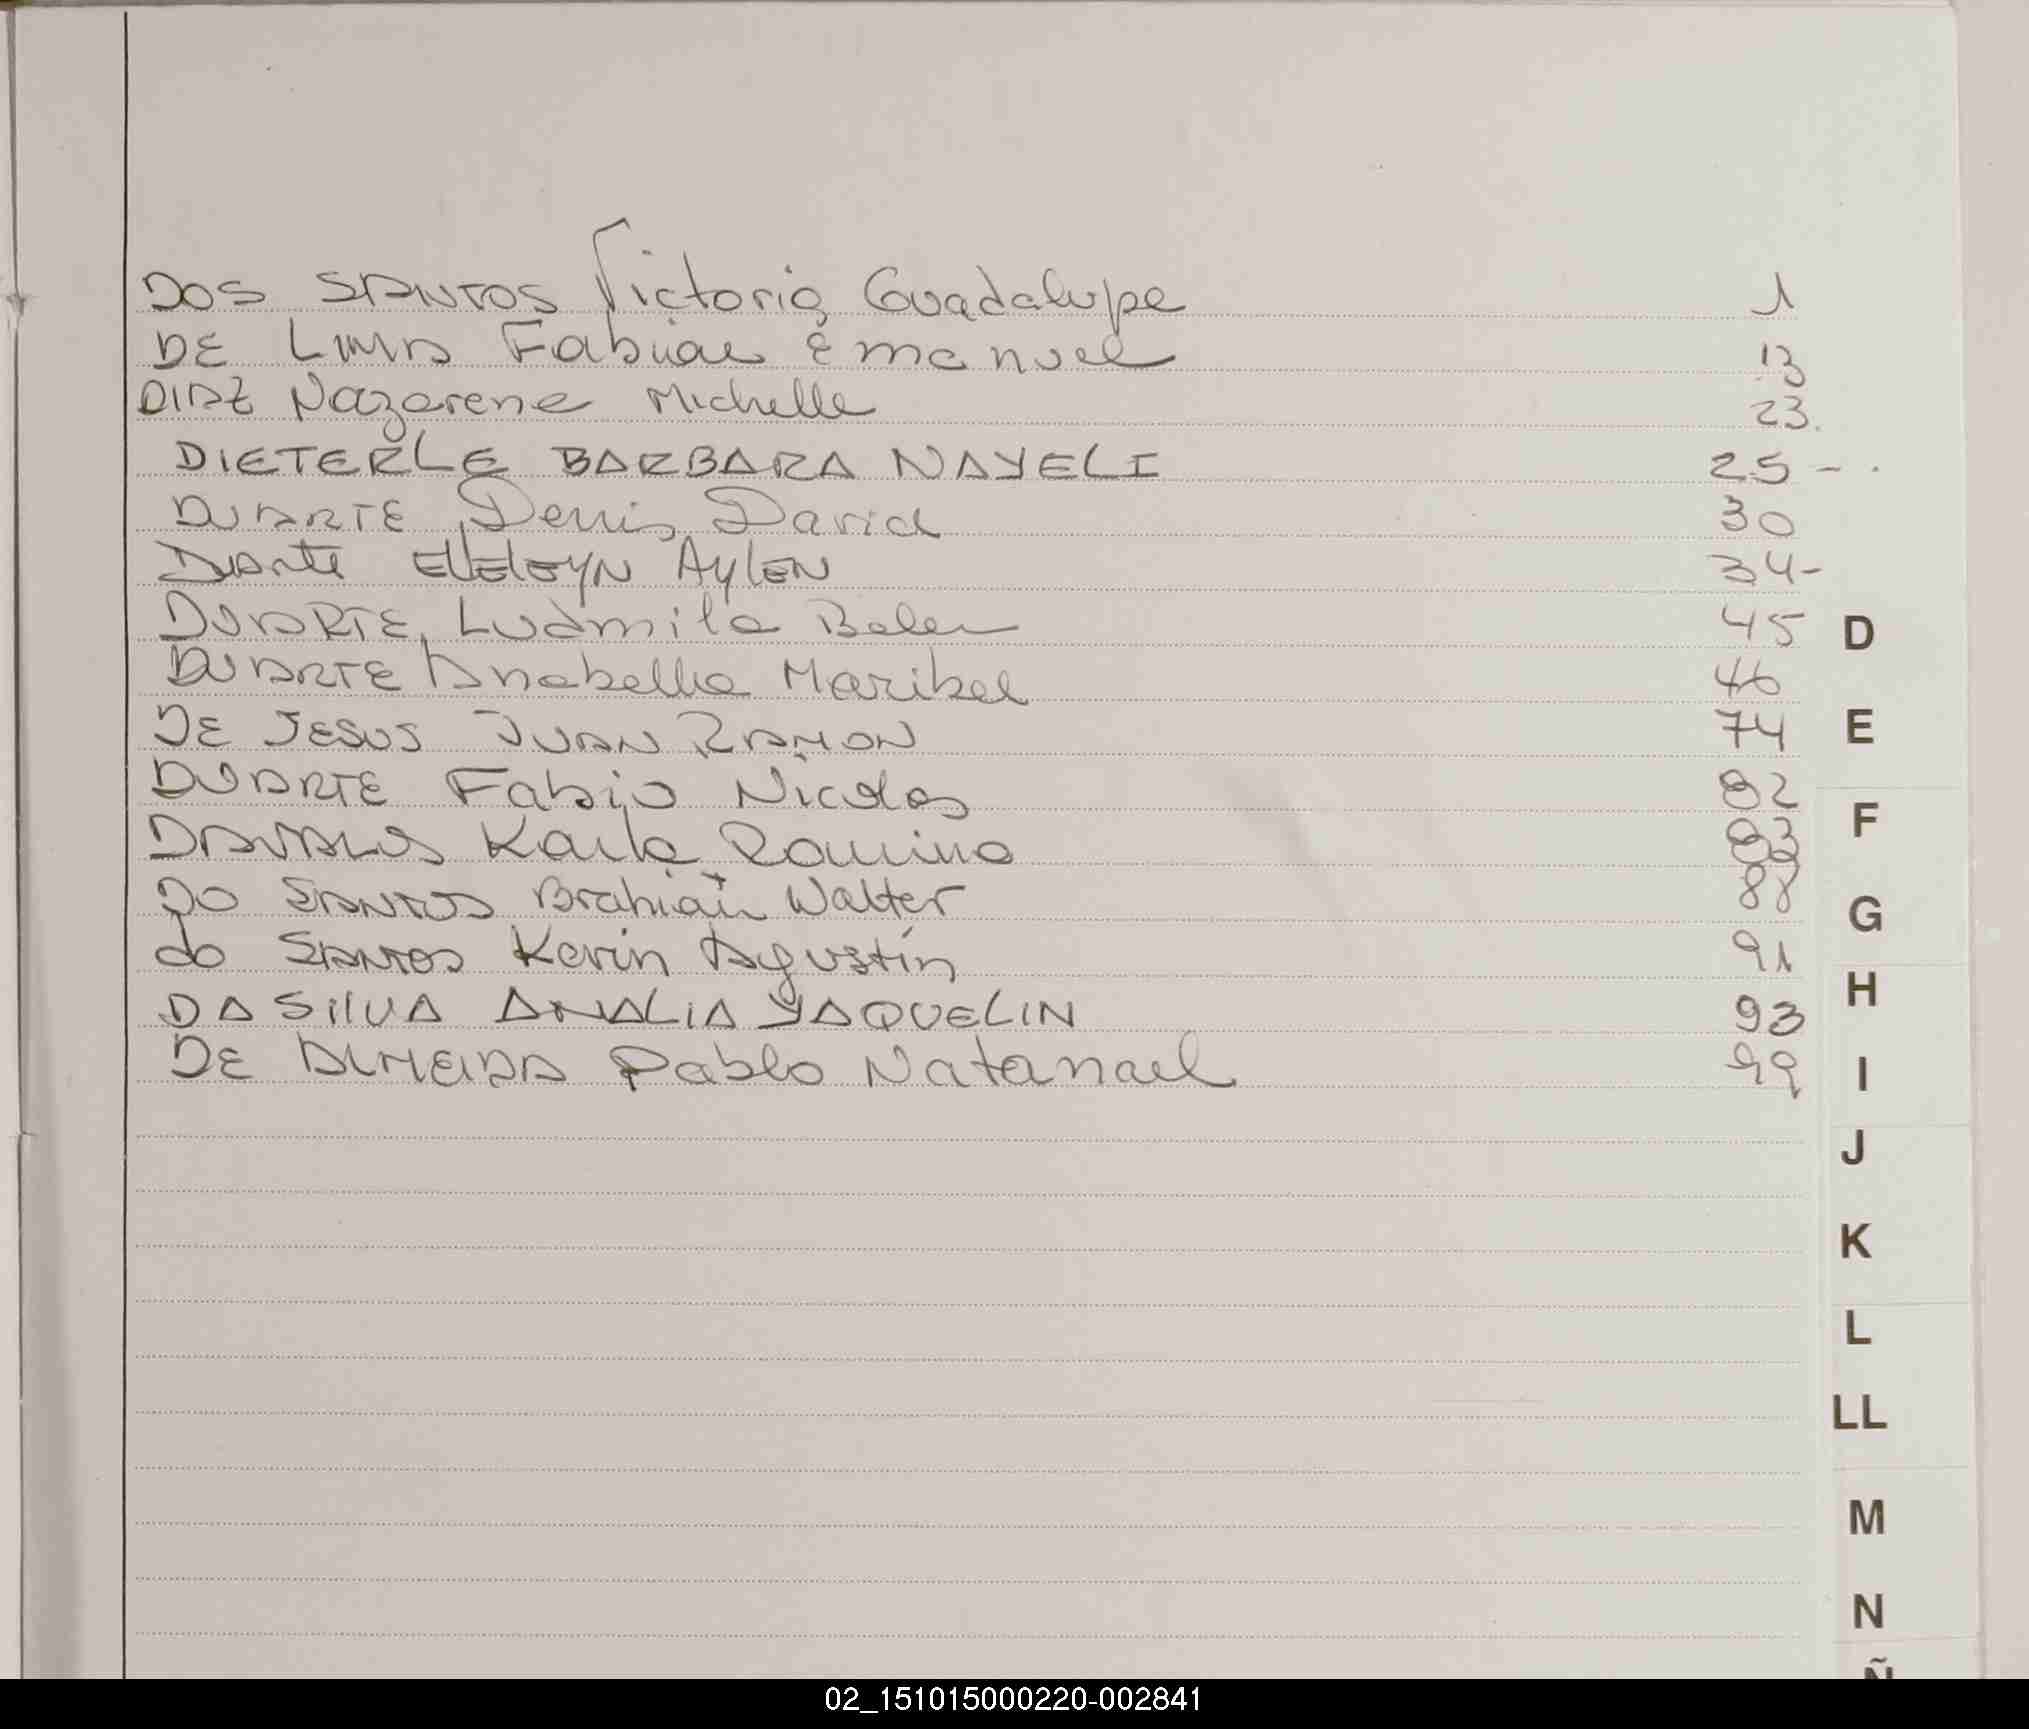 DOS SANTOS Victoria Guadalupe 1
DE LIMA Fabian Emanuel 13
DIAZ Nazarene Michelle 23.
DIETERLE BARBARA NAYELI 25 -
DUARTE Denis David 30
Duarte Aylen 34-
DUARTE, Ludmila Belen 45
DUARTE Anabella Maribel 46
DE JESUS JUAN RAMON 74
DUARTE Fabio Nicolas 82
DAVALOS Karla Romina 83
DO SANTOS Brahian Walter 88
do SANTOS Kevin Agustín 91
DA SilVA ANALIA YAQUELIN 93
DE ALMEIDA Pablo Natanael 99
D
E
F
G
H
I
J
K
L
LL
M
N
Ñ
02_151015000220-002841